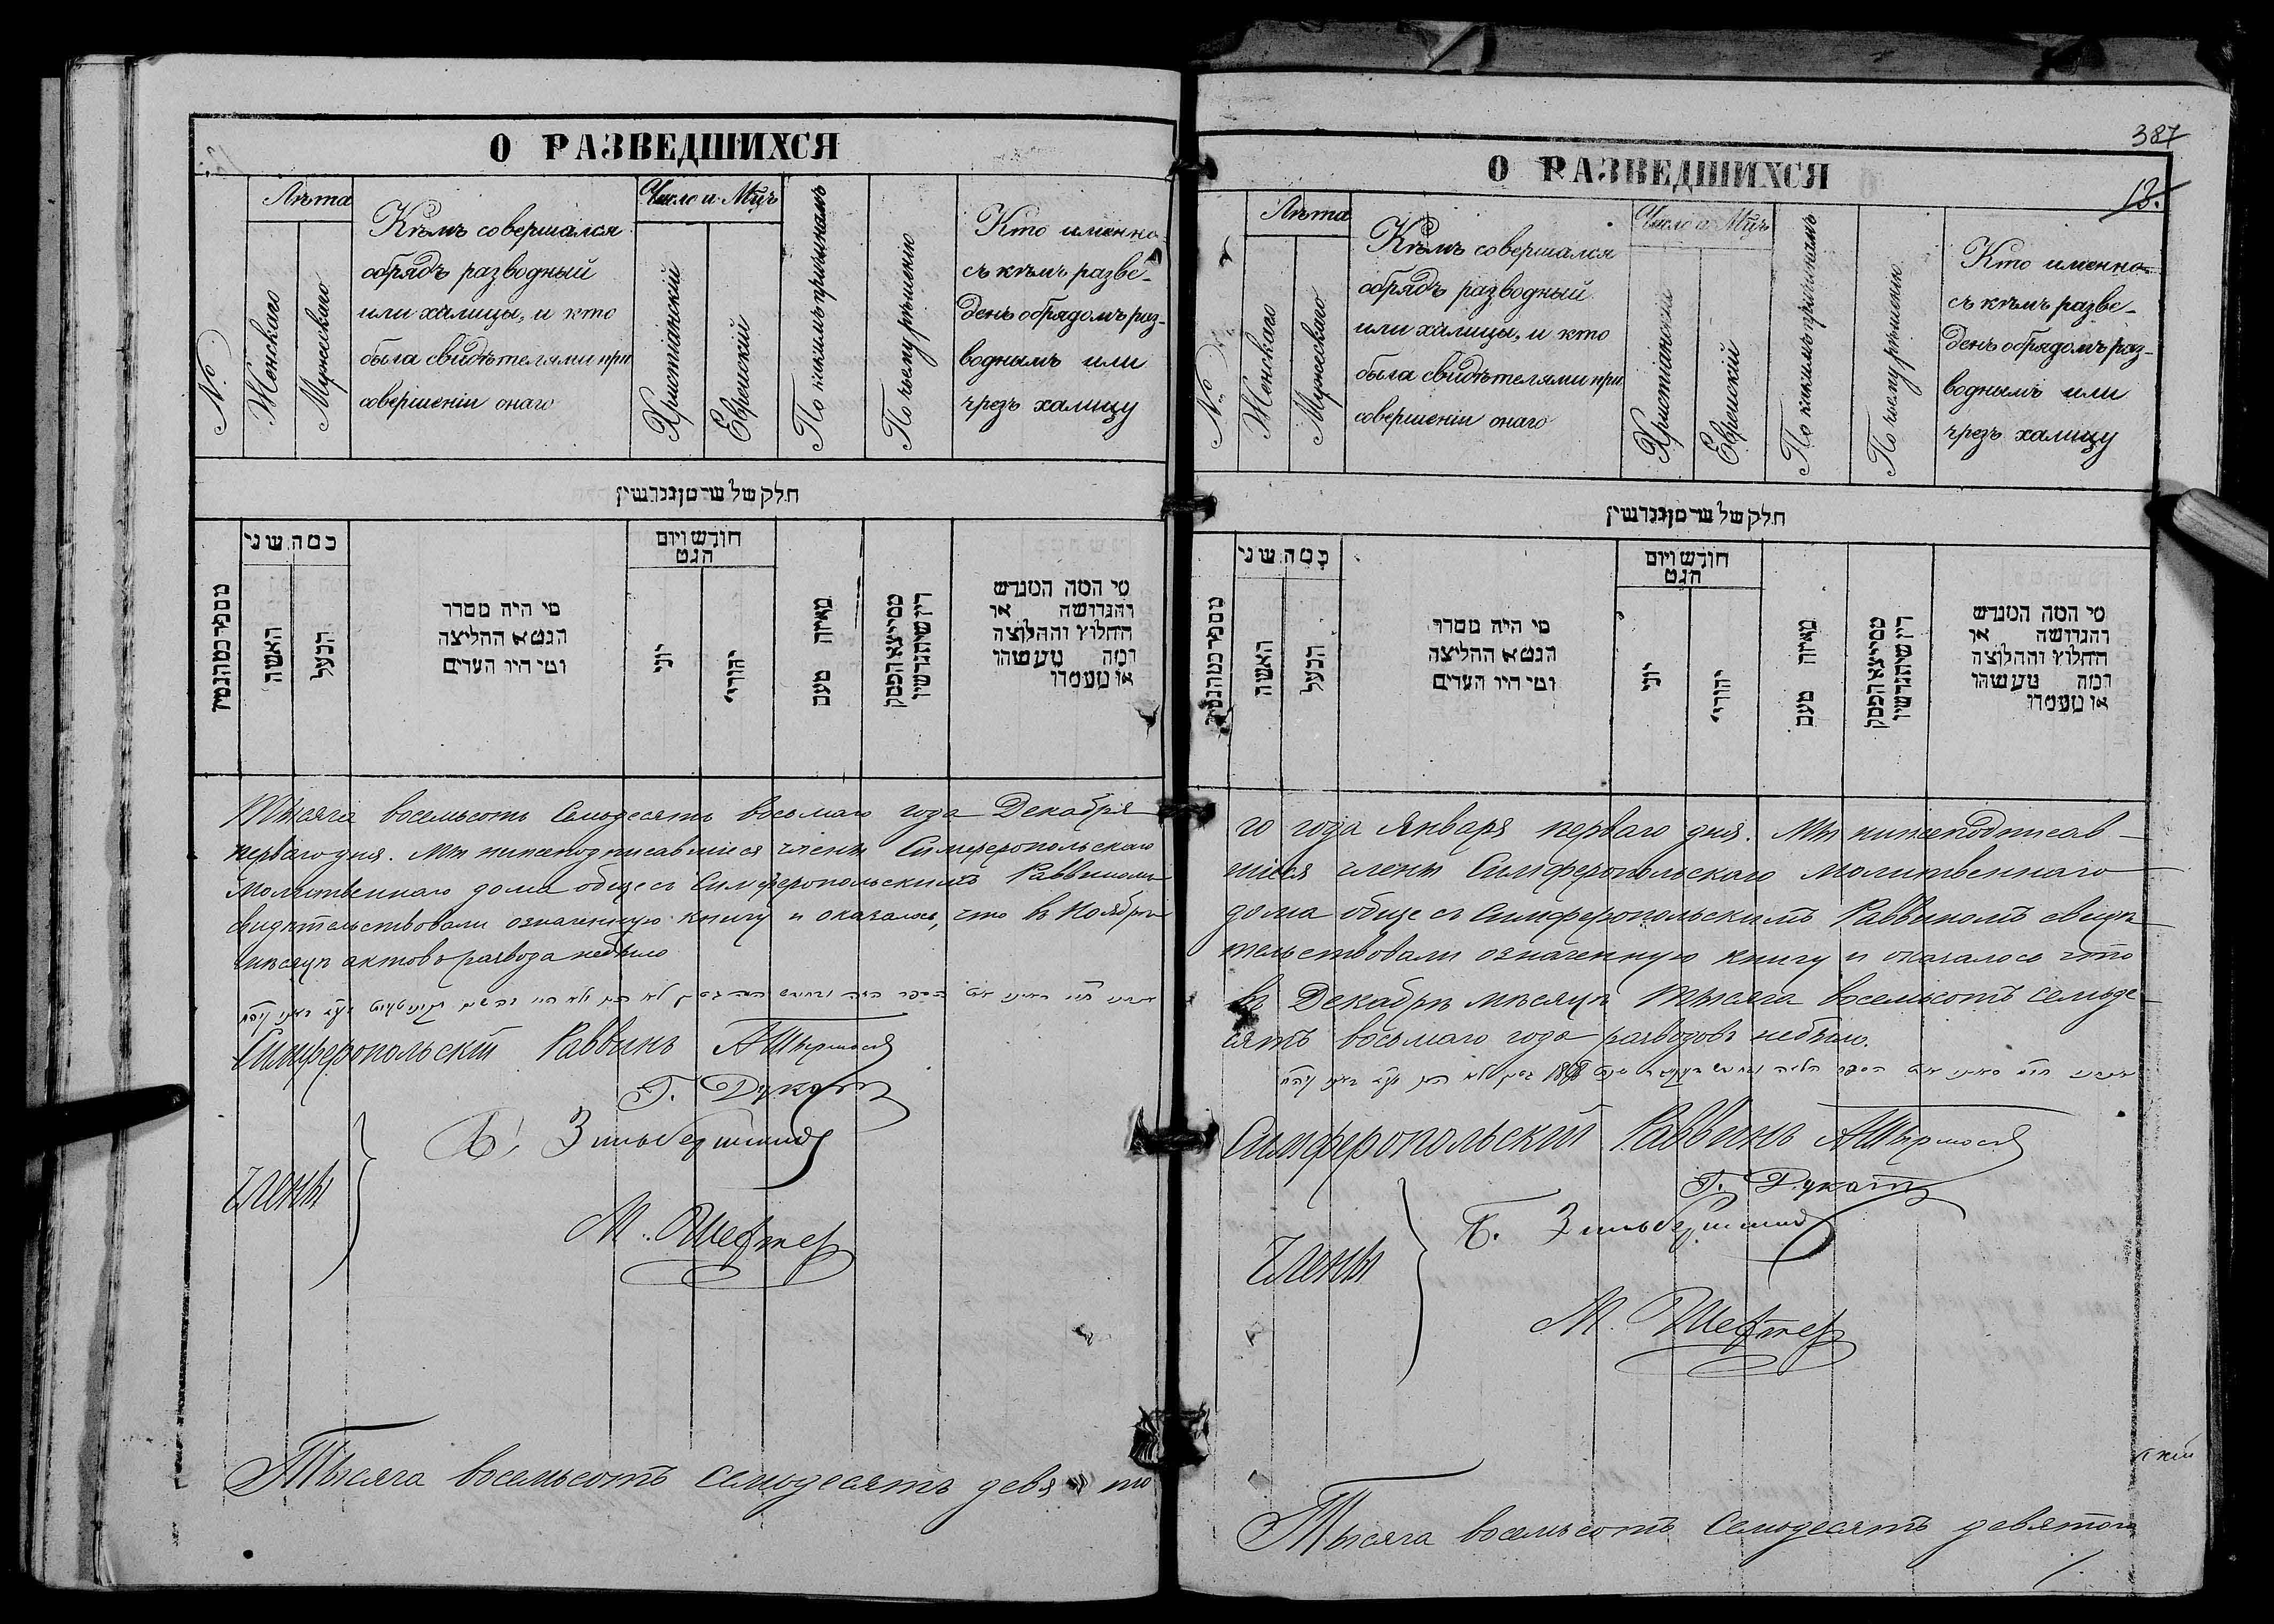 О РАЗВЕДШИХСЯ
№
Лѣта
Женскаго
Мужескаго
Кѣмъ совершался
обрядъ разводный
или халицы, и кто
была свидѣтелями при
совершеніи онаго
Число и Мц҃ъ
Христіанскій
Еврейскій
По какимъ причинамъ
По чьему рѣшенію
Кто именно
съ кѣмъ разве-
денъ обрядомъ раз-
воднымъ или
чрезъ халицу
חלק של
כמה שני
האשה
הבעל
מי היה מסדר
הגט או החליצה
ומי היו העדים
חודש ויום
הגט
יוני
יהודי
מאיזה טעם
מי המה המגרש
והגרושה או
החלוץ והחלוצה
ומה מעשהו
או מעמדו
Тысяча восемьсотъ Семьдесятъ восьмаго года Декабря
перваго дня. Мы нижеподписавшіеся члены Симферопольскаго
Молитвеннаго дома обще съ Симферопольскимъ Раввиномъ
свидѣтельствовали означенную книгу и оказалось, что въ Ноябрѣ
мѣсяцѣ актовъ развода небыло
Симферопольскій Раввинъ
Г. Дукатъ
Члены
Б. Зильберштейн
М. Шефтер
Тысяча восемьсотъ Семьдесятъ девято
387
О РАЗВЕДШИХСЯ
13.
№
Лѣта
Женскаго
Мужескаго
Кѣмъ совершался
обрядъ разводный
или халицы, и кто
была свидѣтелями при
совершеніи онаго
Число и Мц҃ъ
Христіанскій
Еврейскій
По какимъ причинамъ
По чьему рѣшенію
Кто именно
съ кѣмъ разве-
денъ обрядомъ раз-
воднымъ или
чрезъ халицу
חלק של
כמה שני
האשה
הבעל
מי היה מסדר
הגט או החליצה
ומי היו העדים
חודש ויום
הגט
יוני
יהודי
מאיזה טעם
מי המה המגרש
והגרושה או
החלוץ והחלוצה
ומה מעשהו
או מעמדו
го года Января перваго дня. Мы нижеподписав-
шіеся члены Симферопольскаго Молитвеннаго
дома обще съ Симферопольскимъ Раввиномъ свидѣ
тельствовали означенную книгу и оказалось что
въ Декабрѣ мѣсяцѣ Тысяча восемьсотъ семьде
сятъ восьмаго года разводовъ небыло.
1878
Симферопольскій Раввинъ
Г. Дукатъ
Члены
Б. Зильберштейн
М. Шефтер
Тысяча восемьсотъ Семьдесятъ девятого